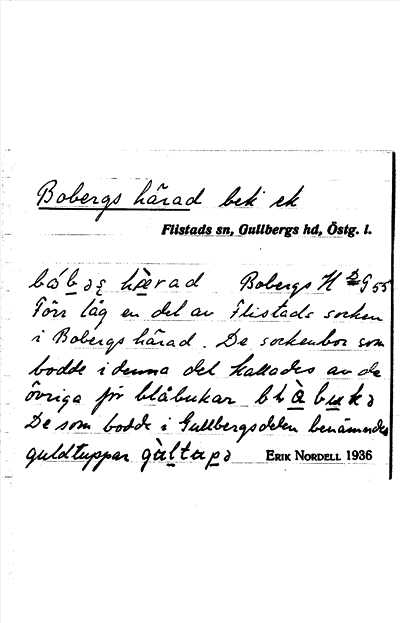 Bobergs härad bek ck
Flistads sn, Gullbergs hd, Östg. l.
härad Bobergs H G 55
Förr låg en del av Flistads socken
i Bobergs härad. De sockenbor som
bodde i denna del kallades av de
övriga för blåbukar
De som bodde i Gullbergsdelen benämndes
guldtuppar
ERIK NORDELL 1936